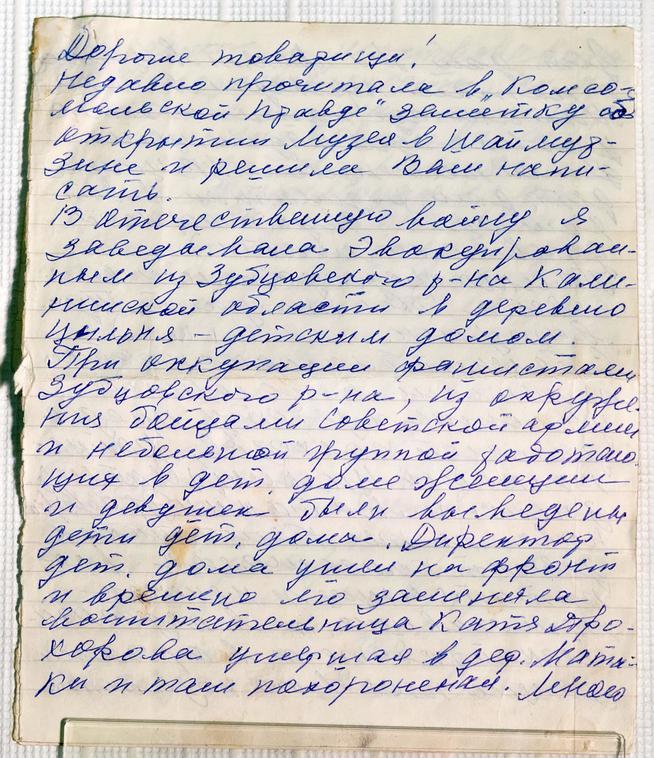 Дорогие товарищи!
Недавно прочитала в „Комсо-
мольской правде" заметку об
открытии Музея в Шаймур-
зине и решила Вам напи-
сать.
В отечественную войну я
заведывала эвакуирован-
ным из Зубцовского р-на Кали-
нинской области в деревню
Цильня - детским домом.
При оккупации фашистами
Зубцовского р-на, из окруже-
ния бойцами советской армии
и небольшой группой работаю-
щих в дет. доме женщин
и девушек были выведены
дети дет. дома. Директор
дет. дома ушел на фронт
и времено его заменяла
воспитательница Катя Про-
хорова умершая в дер. Мата-
ки и там похороненая. Много